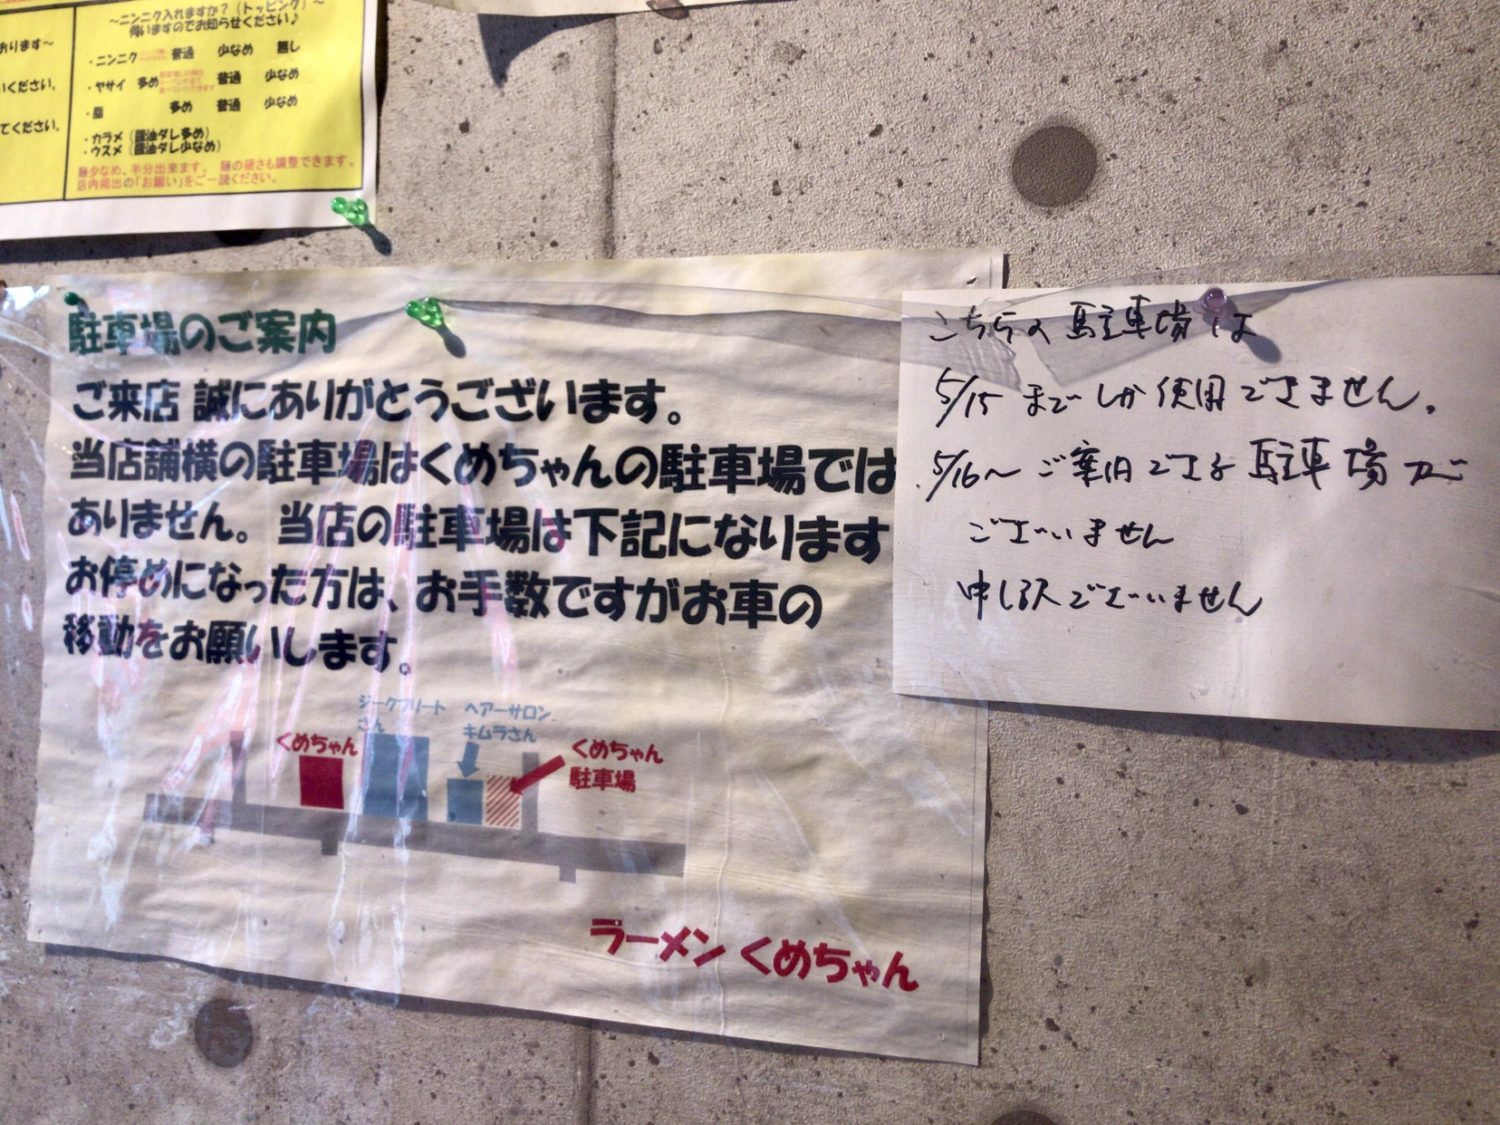 ～ニンニク入れますか？（トッピング）～
伺いますのでお知らせください♪
おります～
・ニンニク 普通 少なめ 無し
いください。
・ヤサイ 多め 普通 少なめ
・脂 多め 普通 少なめ
てください。
・カラメ（醤油ダレ多め）
・ウスメ（醤油ダレ少なめ）
麺少なめ、半分出来ます。 麺の硬さも調整できます。
店内掲出の「お願い」をご一読ください。
駐車場のご案内
ご来店 誠にありがとうございます。
当店舗横の駐車場はくめちゃんの駐車場では
ありません。当店の駐車場は下記になります
お停めになった方は、お手数ですがお車の
移動をお願いします。
ジークフリート
さん
ヘアーサロン
キムラさん
くめちゃん
くめちゃん
駐車場
ラーメン くめちゃん
こちらの駐車場は
5/15 までしか使用できません。
5/16～ ご案内できる駐車場が
ございません
申し訳ございません